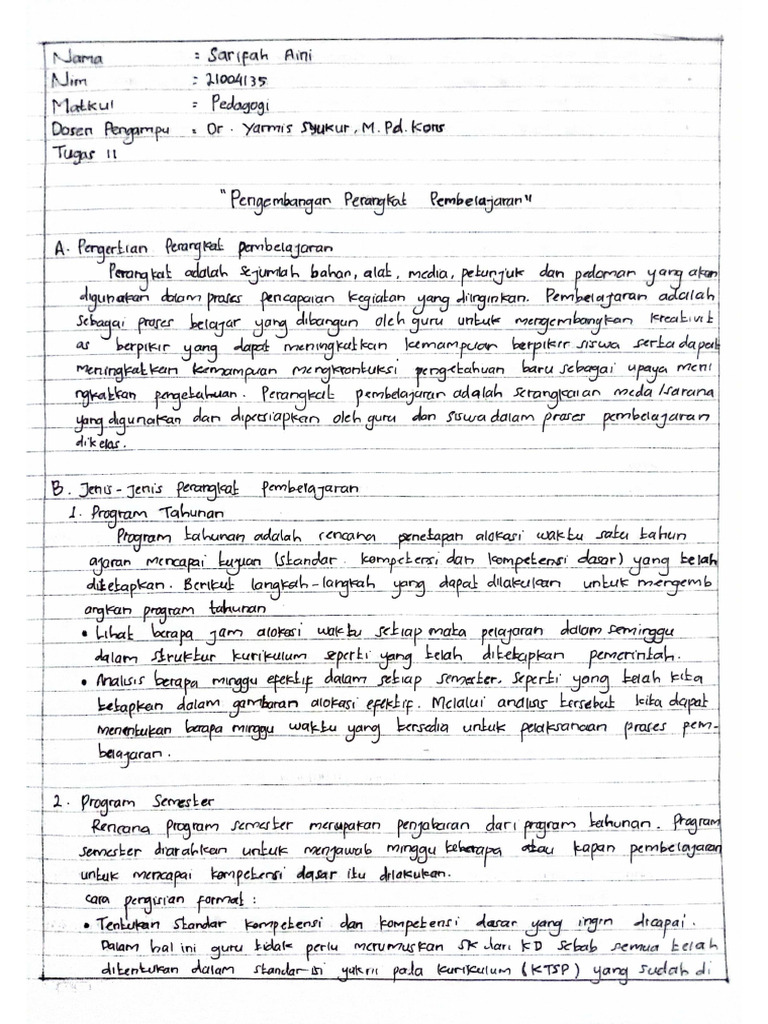 Nama : Sarifah Aini
Nim : 21004135
Matkul : Pedagogi
Dosen Pengampu : Dr. Yarmis Syukur, M.Pd. Kons
Tugas 11
"Pengembangan Perangkat Pembelajaran"
A. Pengertian Perangkat pembelajaran
Perangkat adalah sejumlah bahan, alat, media, petunjuk dan pedoman yang akan
digunakan dalam proses pencapaian kegiatan yang diinginkan. Pembelajaran adallah
sebagai proses belajar yang dibangun oleh guru untuk mengembangkan kreativit
as berpikir yang dapat meningkatkan kemampuan berpikir siswa serta dapat
meningkatkan kemampuan mengkrontuksi pengetahuan baru sebagai upaya meni
ngkatkan pengetahuan. Perangkat pembelajaran adalah serangkaian meda/sarana
yang digunakan dan dipersiapkan oleh guru dan siswa dalam proses pembelajaran
dikelas.
B. Jenis-Jenis perangkat pembelajaran
1. Program Tahunan
Program tahunan adalah rencana penetapan alokasi waktu satu tahun
ajaran mencapai tujuan (standar kompetensi dan kompetensi dasar) yang telah
ditetapkan. Berikut langkah-langkah yang dapat dilakulaan untuk mengemb
angkan program tahunan
• Lihat berapa jam alokasi waktu setiap mata pelajaran dalam seminggu
dalam struktur kurikulum seperti yang telah ditetapkan pemerintah.
• Analisis berapa minggu efektif dalam setiap semester, seperti yang telah kita
tetapkan dalam gambaran alokasi efektif. Melalui analisis tersebut kita dapat
menentukan berapa minggu waktu yang tersedia untuk pelaksanaan proses pem-
belajaran.
2. Program Semester
Rencana program semester merupakan penjabaran dari program tahunan. Program
semester diarahkan untuk menjawab minggu keberapa atau kapan pembelajaran
untuk mencapai kompetensi dasar itu dilakukan.
cara pengisian format :
• Tentukan standar kompetensi dan kompetensi dasar yang ingin dicapai.
Dalam hal ini guru tidak perlu merumuskan SK dari KD sebab semua telah
ditentukan dalam standar isi pada kurikulum (KTSP) yang sudah di